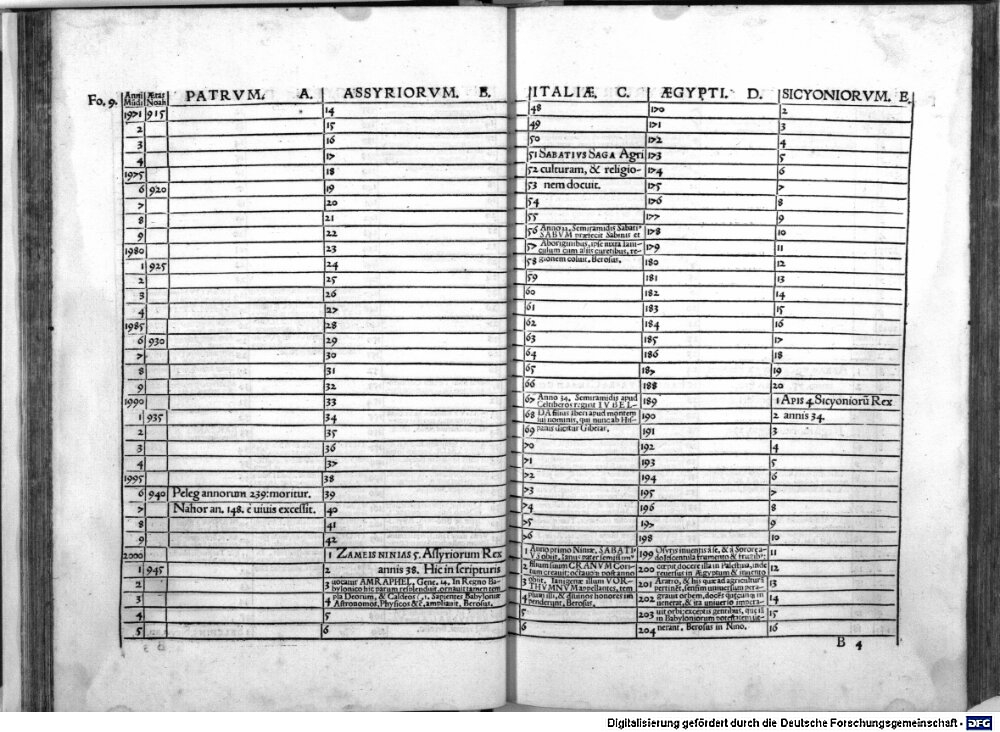 Fo. 9. Anni Mũdi Ætas Noah PATRVM. A. ASSYRIORVM. B. ITALIÆ. C. ÆGYPTI. D. SICYONIORVM. E.
1971 915 14 48 170 2
2 15 49 171 3
3 16 50 172 4
4 17 51 SABATIVS SAGA Agri 173 5
1975 18 52 culturam, & religio- 174 6
6 920 19 53 nem docuit. 175 7
7 20 54 176 8
8 21 55 177 9
9 22 56 Anno 22. Semiramidis Sabati- SABVM præfecit Sabinis et 178 10
1980 23 57 Aboriginibus, ipse iuxta Iani- culum cum aliis curetibus, re- 179 11
1 925 24 58 gionem coluit. Berosus. 180 12
2 25 59 181 13
3 26 60 182 14
4 27 61 183 15
1985 28 62 184 16
6 930 29 63 185 17
7 30 64 186 18
8 31 65 187 19
9 32 66 188 20
1990 33 67 Anno 34. Semiramidis apud Celtiberos regnat IVBEL- 189 1 APIS 4 Sicyoniorũ Rex
1 935 34 68 DA filius Iberi apud montem sui nominis, qui nunc ab His- 190 2 annis 34.
2 35 69 panis dicitur 191 3
3 36 70 192 4
4 37 71 193 5
1995 38 72 194 6
6 940 Peleg annorum 239: moritur. 39 73 195 7
7 Nahor an. 148. è viuis excessit. 40 74 196 8
8 41 75 197 9
9 42 76 198 10
2000 1 ZAMEIS NINIAS 5. Assyriorum Rex 1 Anno primo Niniæ, SABATI- VS obiit. Ianus pater 199 Osyris inuentis à se, & à Sorore 11
1 945 2 annis 38. Hic in scripturis 2 filium suum CRANVM Cori- tum creauit: octauo post anno 200 cœpit docere illa in Palestina, inde reuersus in Ægyptum & inuento 12
2 3 uocatur AMRAPHEL, Gene. 14. In Regno Ba- bylonico hic parum resplenduit, ornauit tamen tem 3 obiit. Ianigenæ illum VOR- THVMNVM appellantes, tem 201 Aratro, & his quæ ad agricultura pertinet, sensim uniuersum pera- 13
3 4 pla Deorum, & Caldeos Sapientes Babyloniæ Astronomos, Physicos &c. ampliauit. Berosus. 4 plum illi, & diuinos honores im penderunt, Berosus. 202 grauit orbem, docẽs quæcunq; in uenerat, & ita uniuerso impera- 14
4 5 5 203 uit orbi: exceptis gentibus, quæ iã in Babyloniorum potestatem 15
5 6 6 204 nerant. Berosus in Nino. 16
B 4
Digitalisierung gefördert durch die Deutsche Forschungsgemeinschaft - DFG